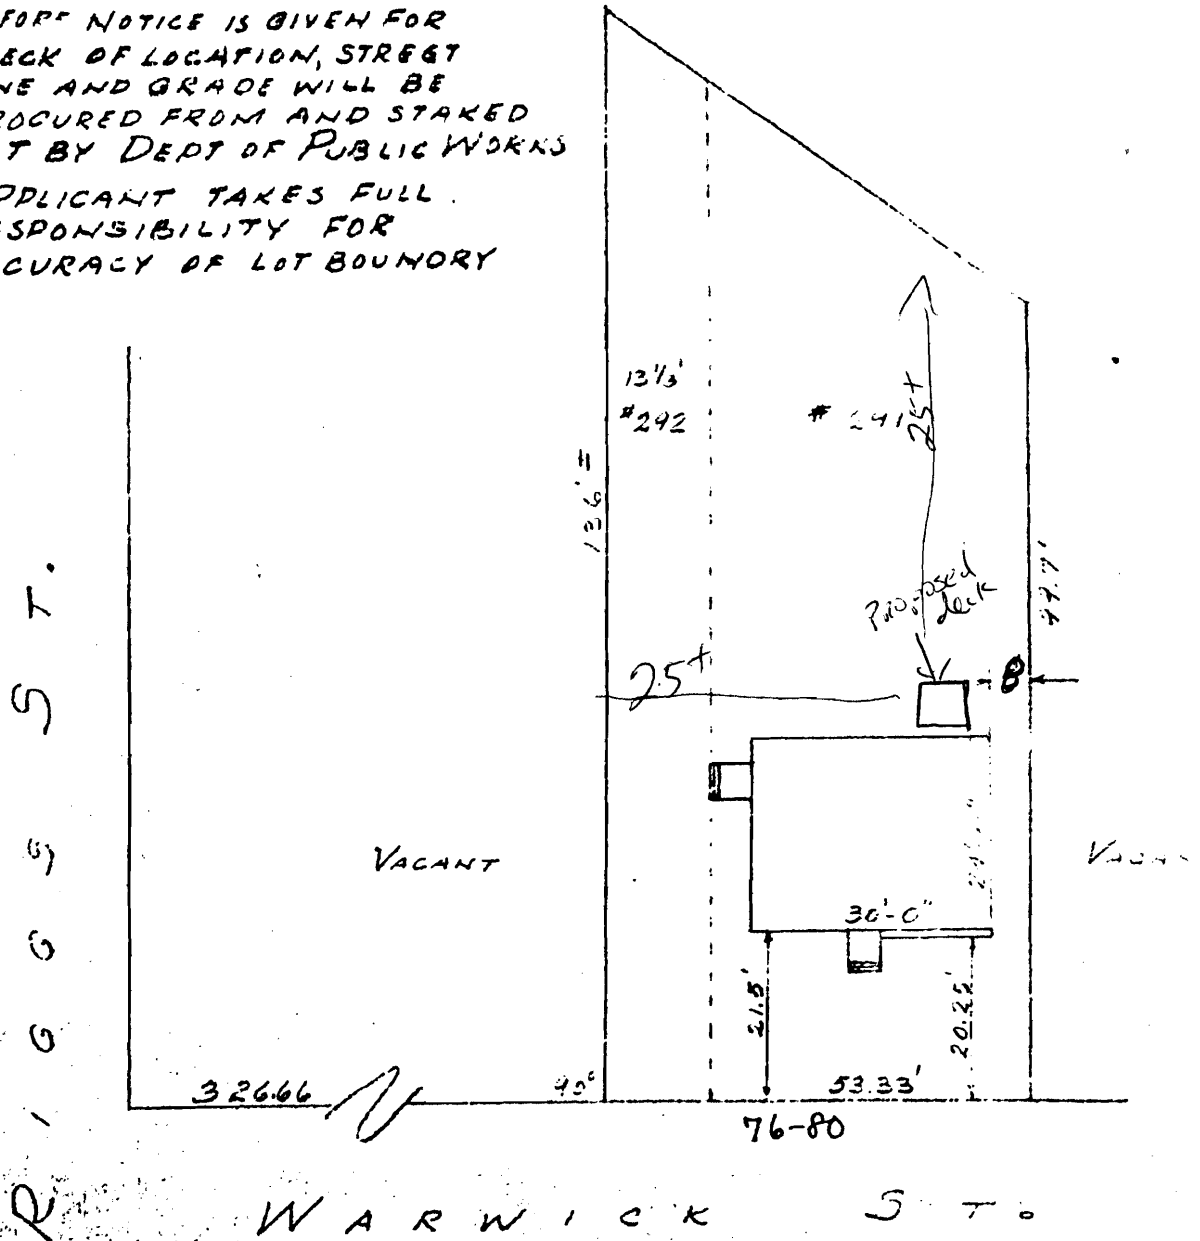 FORE NOTICE IS GIVEN FOR
ECK OF LOCATION, STREET
NE AND GRADE WILL BE
ROCURED FROM AND STAKED
T BY DEPT OF PUBLIC WORKS
PPLICANT TAKES FULL
SPONSIBILITY FOR
CURACY OF LOT BOUNDRY
13 1/3'
#292
# 291
25+
136' =
Proposed
deck
25+
8
VACANT
30'-0"
21.5'
20.25'
326.66
90°
53.33'
76-80
RIGGS ST.
WARWICK ST.